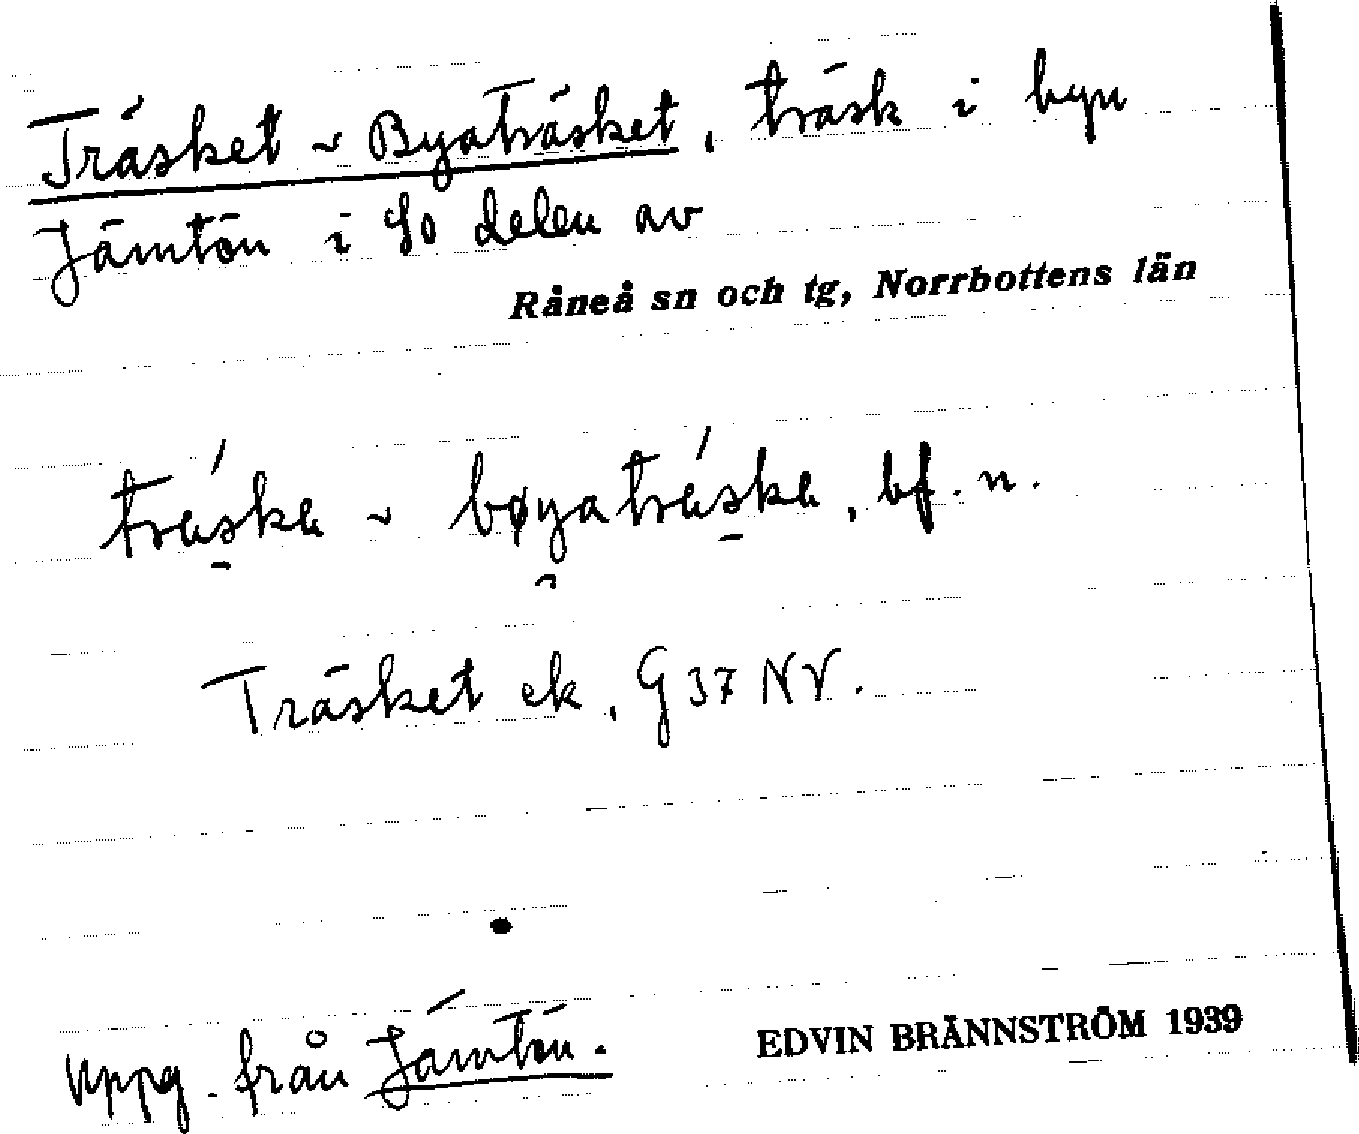 Träsket ~ Byaträsket, träsk i byn
Jämtön i So delen av
Råneå sn och tg, Norrbottens län
träska ~ bøyaträska, bf. n.
Träsket ek. G 37 NV.
Uppg. från Jämtön.
EDVIN BRÄNNSTRÖM 1939